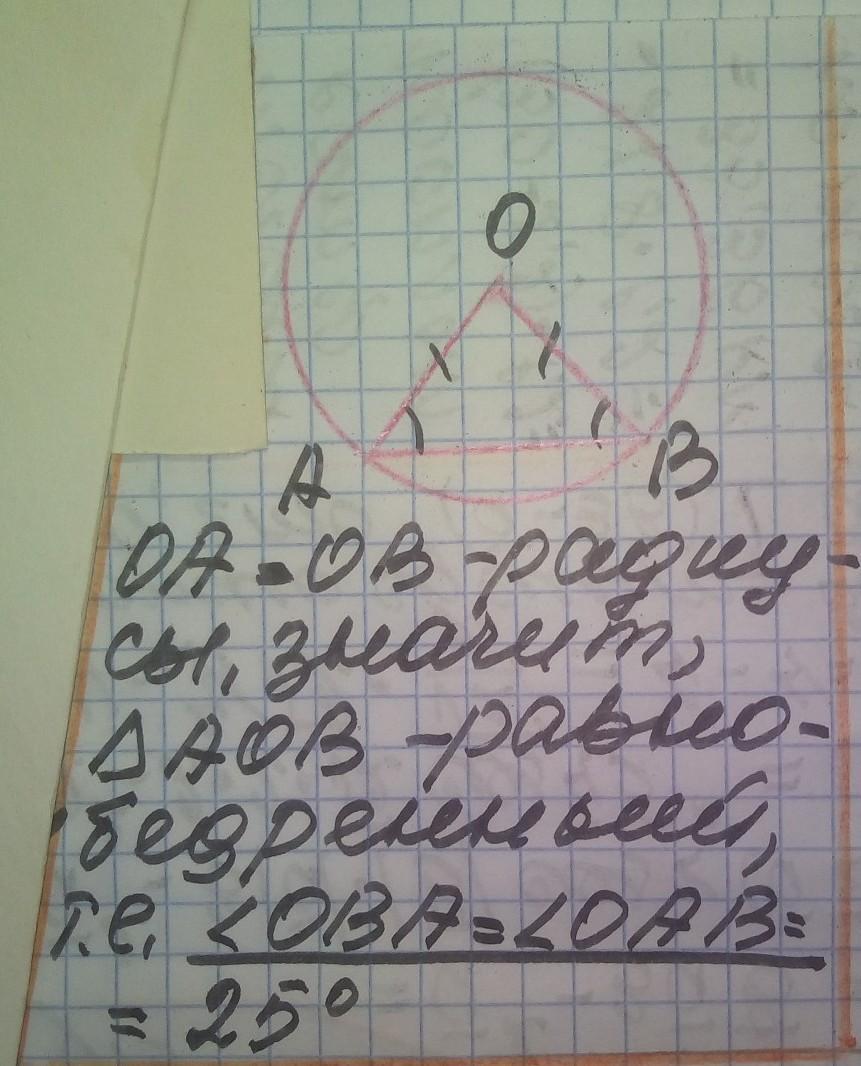 O
A
B
OA = OB - радиу-
сы, значит,
Δ AOB - равно-
бедренный,
т.е. <OBA = <OAB =
= 25°